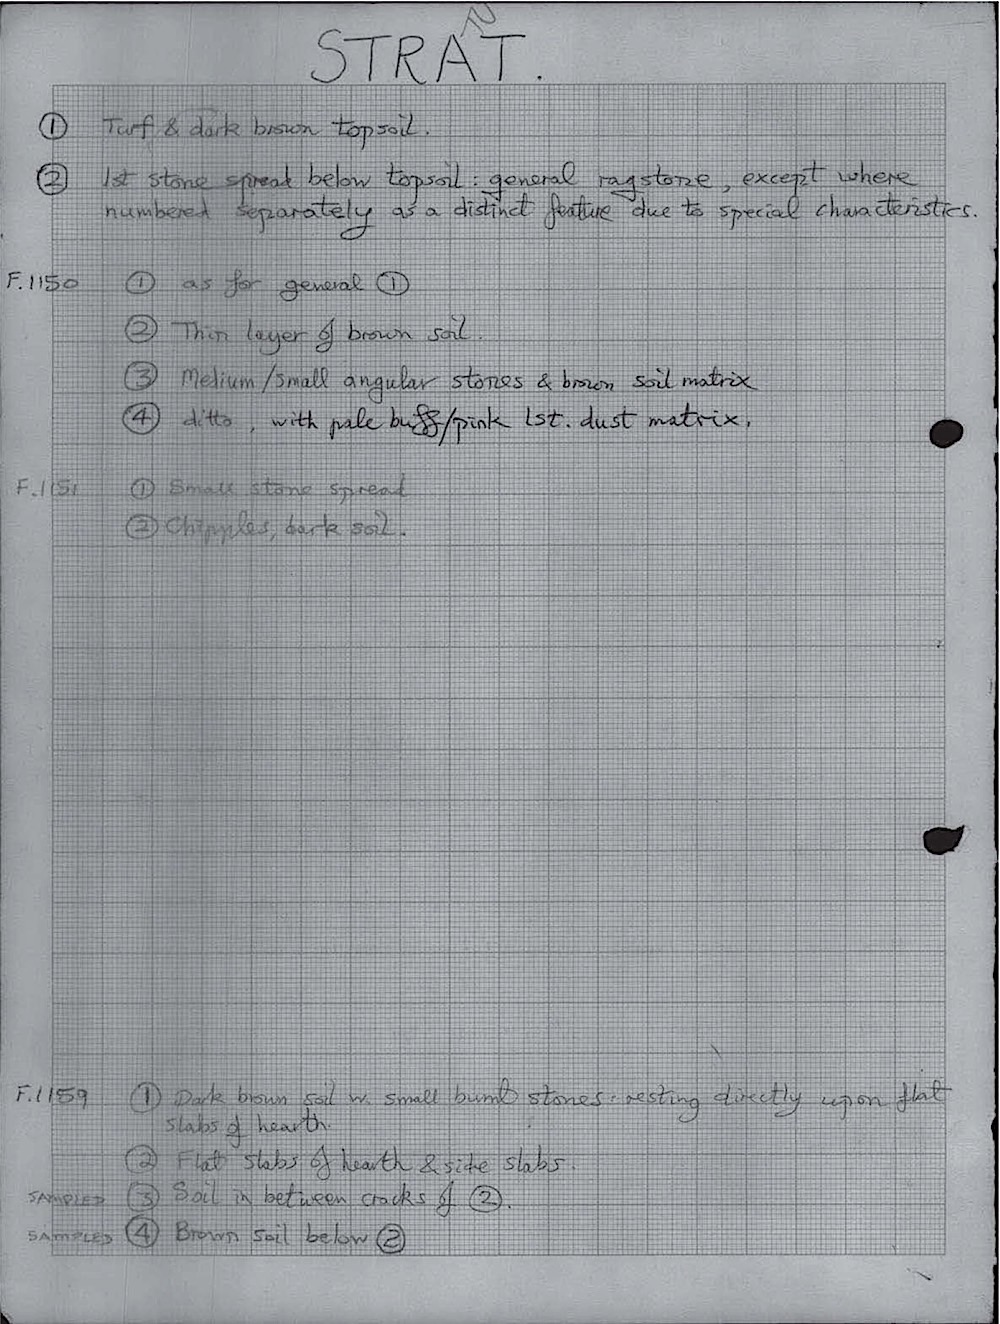 STRAT.
① Turf & dark brown topsoil.
② 1st stone spread below topsoil: general ragstone, except where
numbered separately as a distinct feature due to special characteristics.
F.1150 ① as for general ①
② Thin layer of brown soil.
③ Medium/small angular stones & brown soil matrix
④ ditto, with pale buff/pink lst. dust matrix.
F.1151 ① Small stone spread
② Chipples, dark soil.
F.1159 ① Dark brown soil w. small burnt stones: resting directly upon flat
slabs of hearth.
② Flat slabs of hearth & side slabs.
SAMPLED ③ Soil in between cracks of ②.
SAMPLED ④ Brown soil below ②